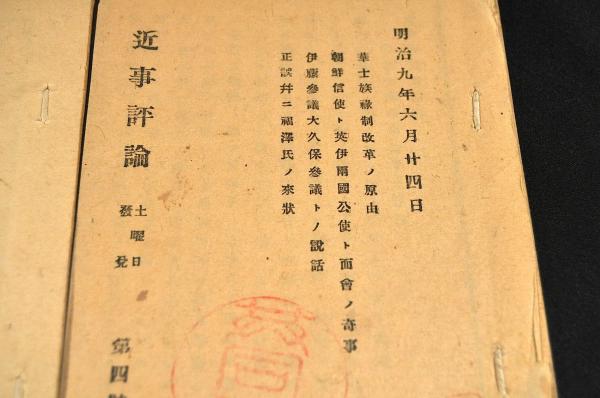 明治九年六月廿四日
華士族祿制改革ノ原由
朝鮮信使ト英伊兩國公使ト面會ノ奇事
伊藤參議大久保參議トノ說話
正誤幷ニ福澤氏ノ來狀
近事評論
土曜日
發兌
第四號